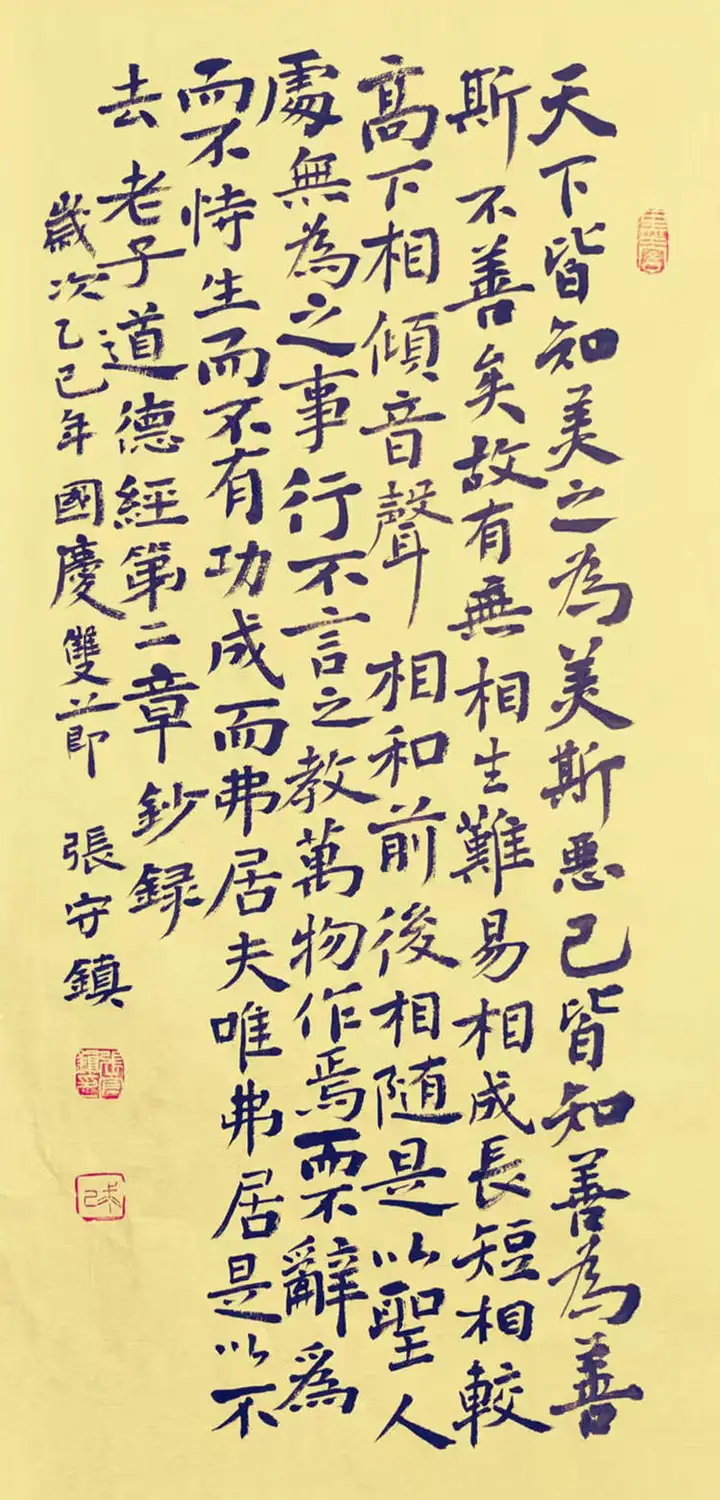 天下皆知美之為美斯悪已皆知善為善
斯不善矣故有無相生難易相成長短相較
高下相傾音聲相和前後相随是以聖人
處無為之事行不言之教萬物作焉而不辭為
而不恃生而不有功成而弗居夫唯弗居是以不
去 老子道德經第二章鈔録
歲次乙巳年國慶雙節 張守鎮